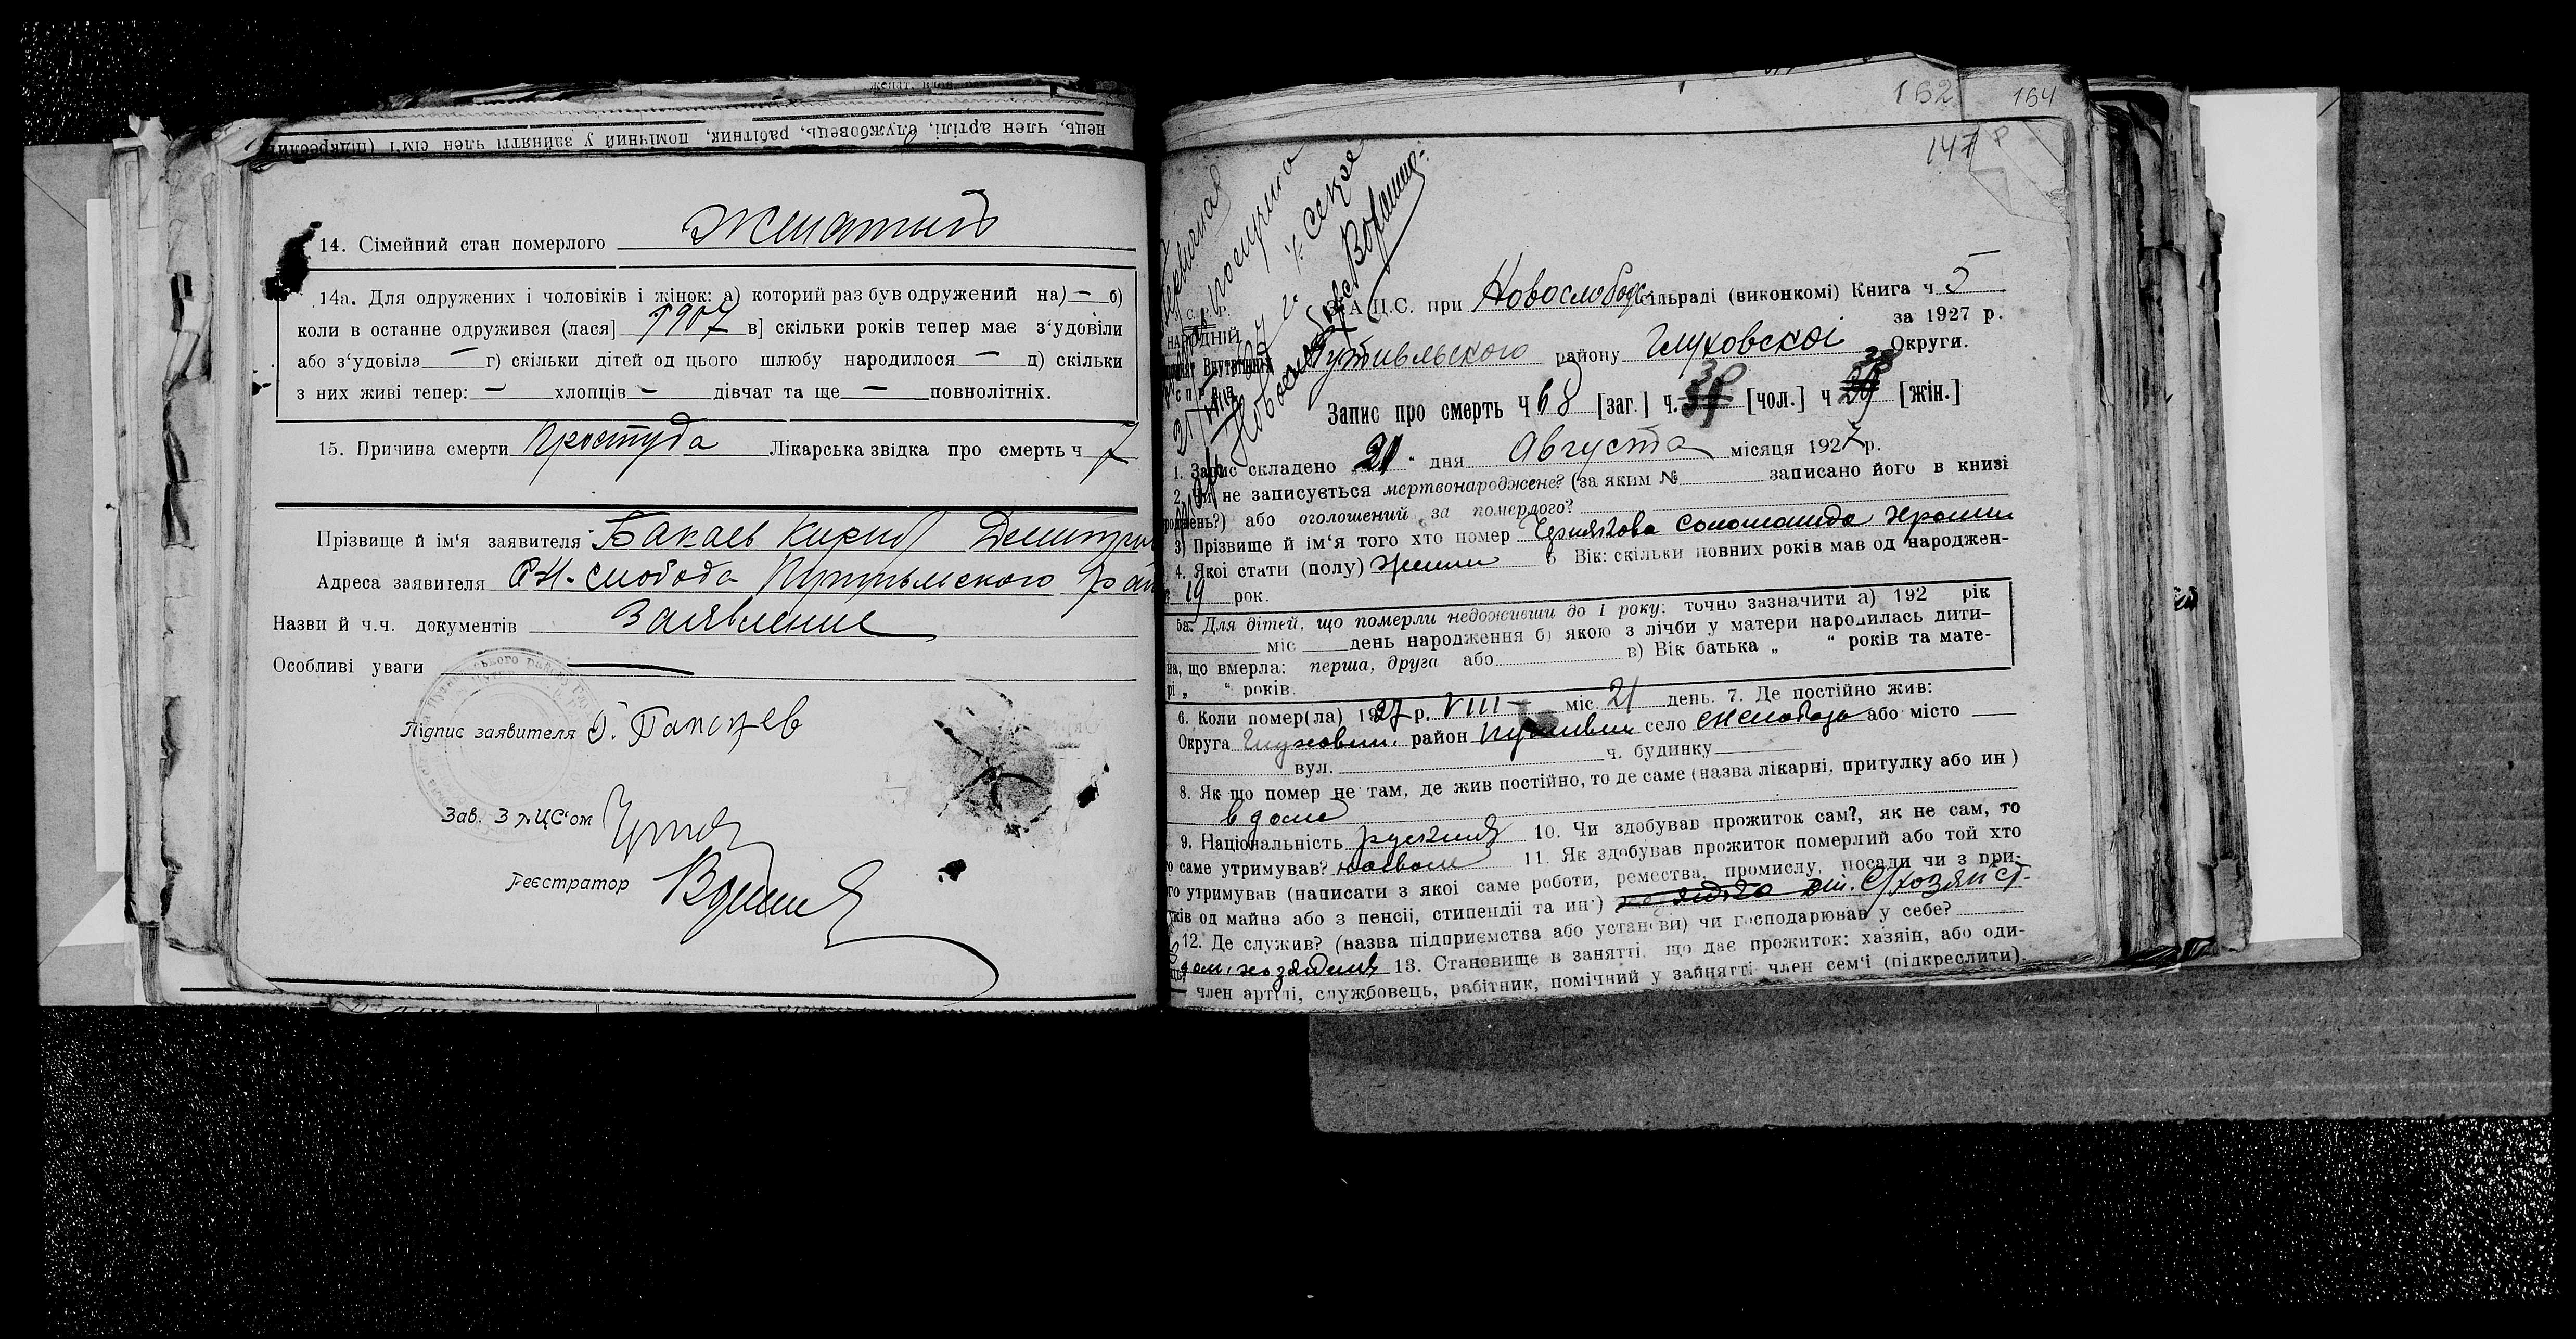 нець, член артілі, службовець, рабітник, помічний у зайнятті член сім'ї (підкреслити)
14. Сімейний стан померлого Женатий
14а. Для одружених і чоловіків і жінок: а) которий раз був одружений на) — б)
коли в останне одружився (лася] 1907 в] скільки років тепер має з'удовіли
або з'удовіла — г) скільки дітей од цього шлюбу народилося — д) скільки
з них живі тепер: — хлопців — дівчат та ще — повнолітніх.
15. Причина смерти Простуда Лікарська звідка про смерть ч 7
Прізвище й ім'я заявителя Бакаев Кирил
Адреса заявителя Н-слобода Путивльского
Назви й ч.ч. документів Заявление
Особливі уваги —
Підпис заявителя
Зав. ЗАЦС'ом
Реєстратор
152 154
147
З.А.Ц.С. при Новослободс сільраді (виконкомі) Книга ч 5
за 1927 р.
Путивльского району Глуховскоі Округи.
Запис про смерть Ч 68 [заг.] ч. 30 [чол.] ч 38 [жін.]
1. Запис складено 21 " дня Августа місяця 1927 р.
2. Чи не записується мертвонароджене? (за яким № записано його в книзі
роджень?) або оголошений за померлого?
3) Прізвище й ім'я того хто помер Соломанида
4. Якої стати (полу) 5 Вік: скільки повних років мав од народжен-
19 рок.
5а. Для дітей, що померли недоживши до 1 року: точно зазначити а) 192 рік
міс день народження б) якою з лічби у матери народилась дити-
на, що вмерла: перша, друга або в) Вік батька „ “ років та мате-
рі „ “ років.
6. Коли помер(ла) 1927 р. VIII — міс 21 день. 7. Де постійно жив:
Округа Глуховск. район село або місто —
вул. ч. будинку
8. Як що помер не там, де жив постійно, то де саме (назва лікарні, притулку або ин)
в доме
9. Національність русская 10. Чи здобував прожиток сам?, як не сам, то
го саме утримував? 11. Як здобував прожиток померлий або той хто
го утримував (написати з якої саме роботи, ремества, промислу, посади чи з при-
тків од майна або з пенсії, стипендії та ин.)
12. Де служив? (назва підприємства або установи) чи господарював у себе?
13. Становище в занятті, що дає прожиток: хазяін, або оди-
член артілі, службовець, рабітник, помічний у зайнятті член сем'ї (підкреслити).